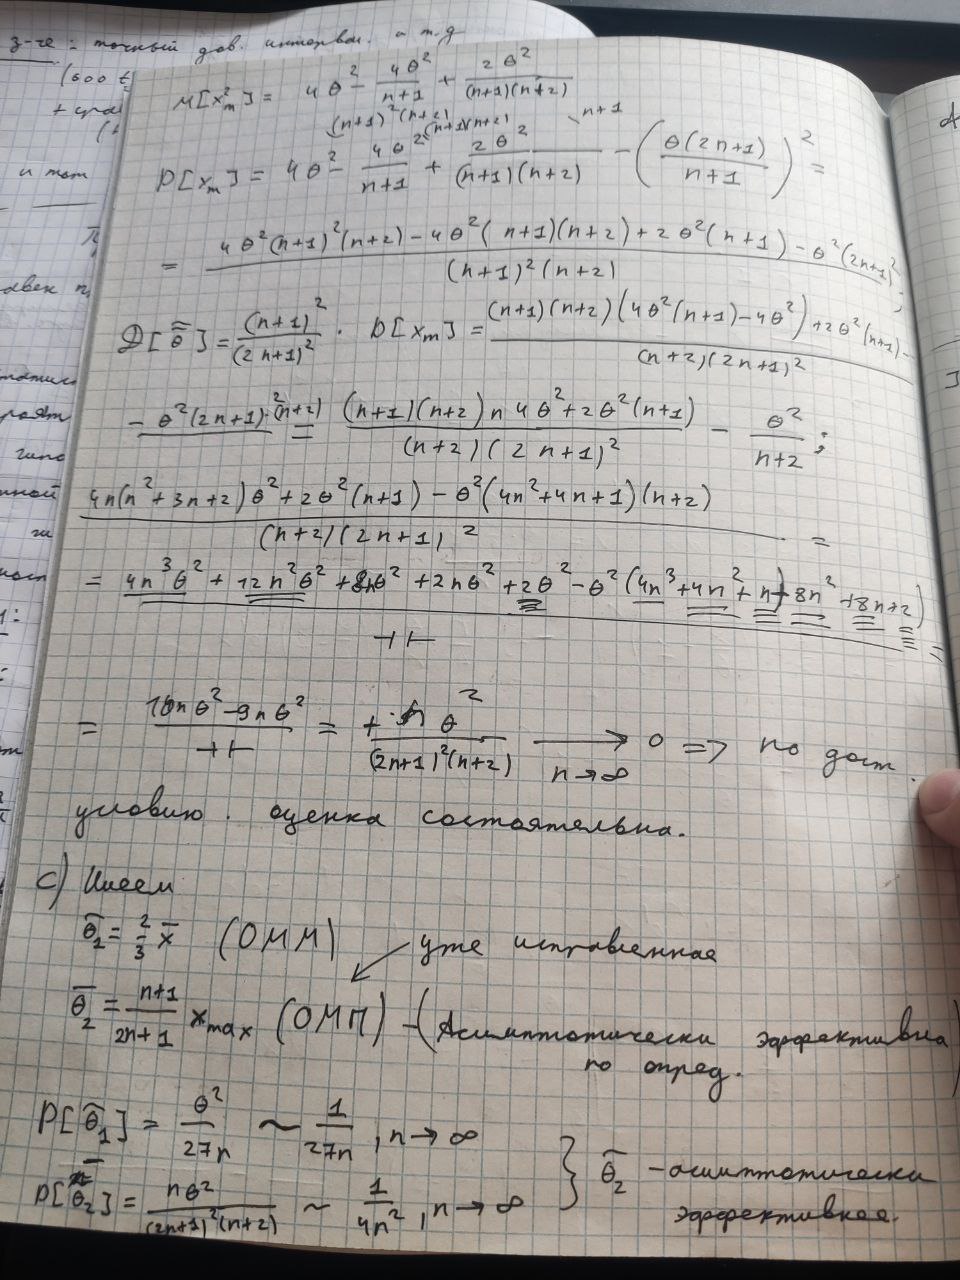 з-че = точный дов. интервал. и т.д
(600 t
+ сра
и тот
M[x_m^2] = 4θ^2 - 4θ^2/(n+1) + 2θ^2/((n+1)(n+2))
(n+1)^2(n+2) (n+1)(n+2) n+1
D[x_m] = 4θ^2 - 4θ^2/(n+1) + 2θ^2/((n+1)(n+2)) - (θ(2n+1)/(n+1))^2 =
= (4θ^2(n+1)^2(n+2) - 4θ^2(n+1)(n+2) + 2θ^2(n+1) - θ^2(2n+1)^2)/((n+1)^2(n+2)) ;
D[θ̃] = (n+1)^2/(2n+1)^2 · D[x_m] = ((n+1)(n+2)(4θ^2(n+1) - 4θ^2) + 2θ^2(n+1) -)/((n+2)(2n+1)^2)
- θ^2(2n+1)^2(n+2) = ((n+1)(n+2)n4θ^2 + 2θ^2(n+1))/((n+2)(2n+1)^2) - θ^2/(n+2) ;
(4n(n^2+3n+2)θ^2 + 2θ^2(n+1) - θ^2(4n^2+4n+1)(n+2))/((n+2)(2n+1)^2) =
= (4n^3θ^2 + 12n^2θ^2 + 8nθ^2 + 2nθ^2 + 2θ^2 - θ^2(4n^3+4n^2+n+8n^2+8n+2))/(⊣⊢) =
= (10nθ^2 - 9nθ^2)/(⊣⊢) = + nθ^2/((2n+1)^2(n+2)) ⟶ 0 => по дост.
n→∞
условию. оценка состоятельна.
c) Имеем
θ̃_1 = 2/3 x̄ (ОММ) уже исправленная
θ̃_2 = (n+1)/(2n+1) x_max (ОМП) - (Асимптотически эффективна
по опред. )
D[θ̃_1] = θ^2/(27n) ~ 1/(27n), n→∞
D[θ̃_2] = nθ^2/((2n+1)^2(n+2)) ~ 1/(4n^2), n→∞ } θ̃_2 - асимптотически
эффективная.